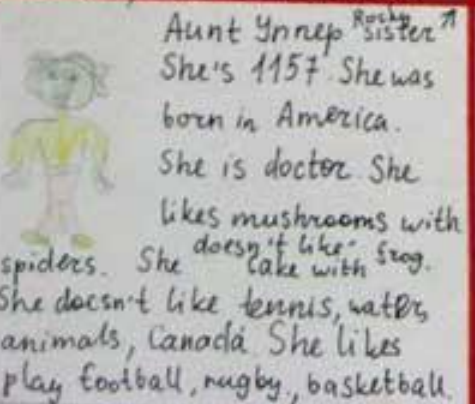 Aunt Ynnep Rocky sister
She's 1157 She was
born in America.
She is doctor She
likes mushrooms with
spiders. She doesn't like cake with frog.
She doesn't like tennis, water,
animals, Canada She likes
play football, rugby, basketball.